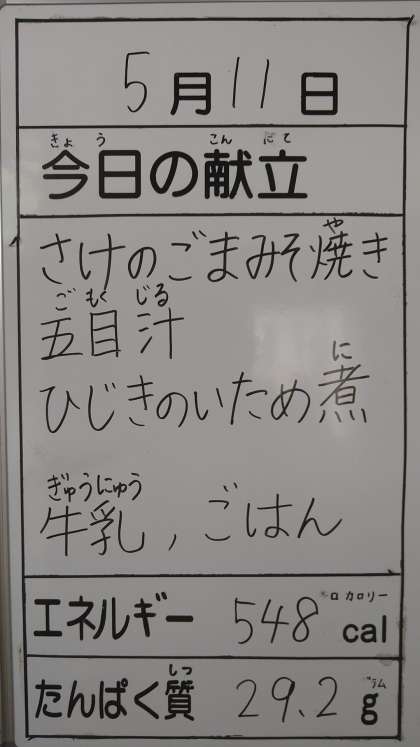 5月11日
きょう こんだて
今日の献立
や
さけのごまみそ焼き
ごもくじる
五目汁
に
ひじきのいため煮
ぎゅうにゅう
牛乳、ごはん
カロリー
エネルギー 548 cal
しつ
たんぱく質 29.2 g